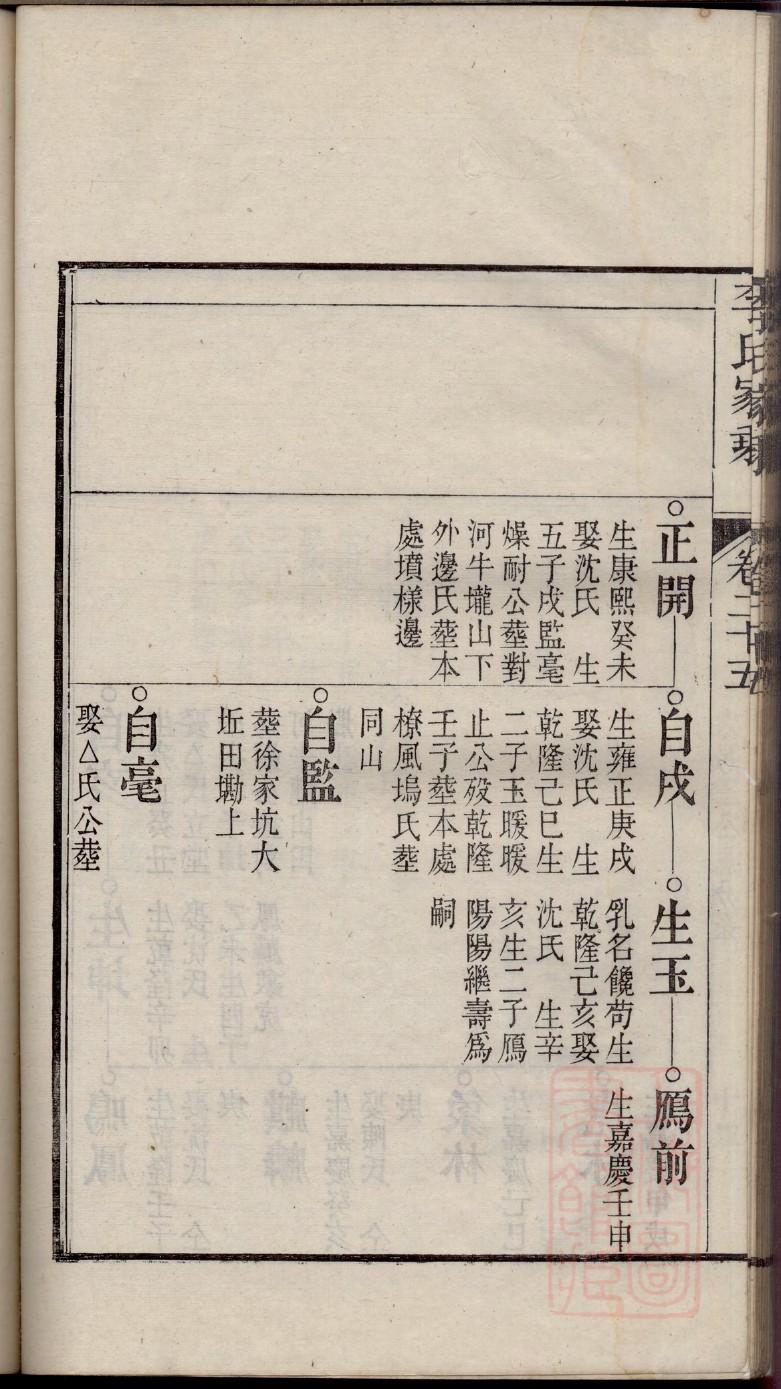 李氏家乘
卷二十五
正開
生康熙癸未
娶沈氏 生
五子戌監毫
燥耐公塟對
河牛壠山下
外邊氏塟本
處墳様邊
自戌
生雍正庚戌
娶沈氏 生
乾隆己巳生
二子玉暖暖
止公殁乾隆
壬子塟本處
橑風塢氏塟
同山
自監
塟徐家坑大
坵田墈上
自毫
娶△氏公塟
生玉
乳名饞苟生
乾隆己亥娶
沈氏 生辛
亥生二子鴈
陽陽繼壽爲
嗣
鴈前
生嘉慶壬申